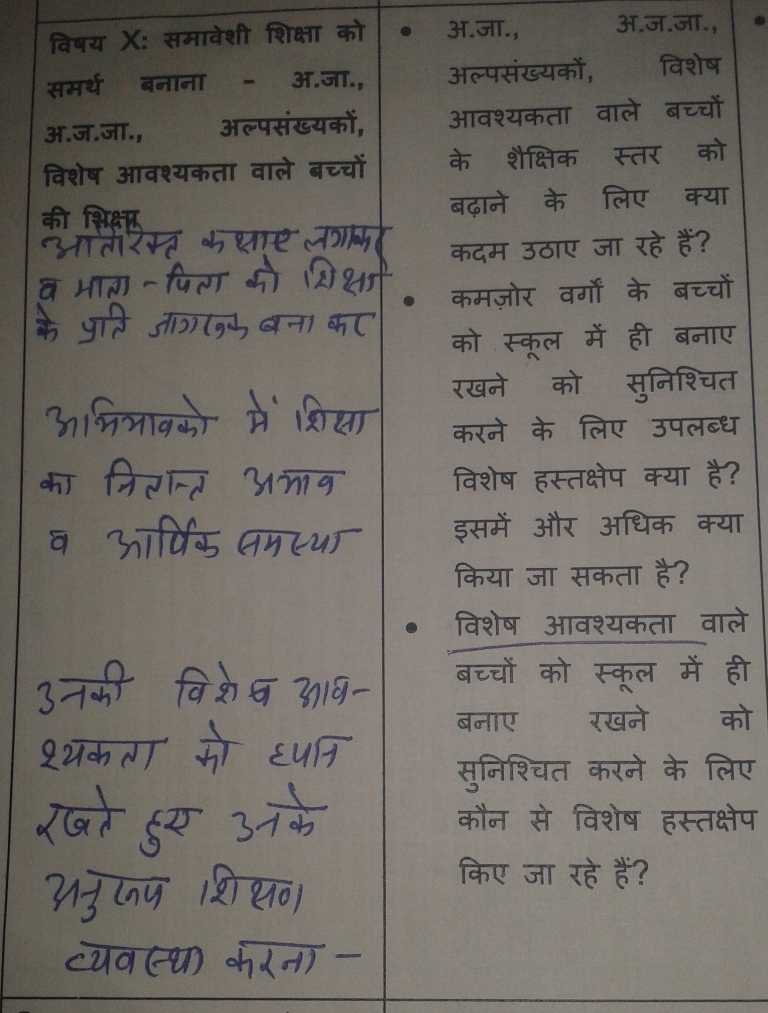 विषय X: समावेशी शिक्षा को
समर्थ बनाना – अ.जा.,
अ.ज.जा., अल्पसंख्यकों,
विशेष आवश्यकता वाले बच्चों
की शिक्षा
अतिरिक्त कक्षाए लगाकर
व माता-पिता को शिक्षा
के प्रति जागरूक बना कर
अभिभावको में शिक्षा
का नितान्त अभाव
व आर्थिक समस्या
उनकी विशेष आव-
श्यकता को ध्यान
रखते हुए उनके
अनुरूप शिक्षण
व्यवस्था करना –
• अ.जा., अ.ज.जा.,
अल्पसंख्यकों, विशेष
आवश्यकता वाले बच्चों
के शैक्षिक स्तर को
बढ़ाने के लिए क्या
कदम उठाए जा रहे हैं?
• कमज़ोर वर्गों के बच्चों
को स्कूल में ही बनाए
रखने को सुनिश्चित
करने के लिए उपलब्ध
विशेष हस्तक्षेप क्या है?
इसमें और अधिक क्या
किया जा सकता है?
• विशेष आवश्यकता वाले
बच्चों को स्कूल में ही
बनाए रखने को
सुनिश्चित करने के लिए
कौन से विशेष हस्तक्षेप
किए जा रहे हैं?